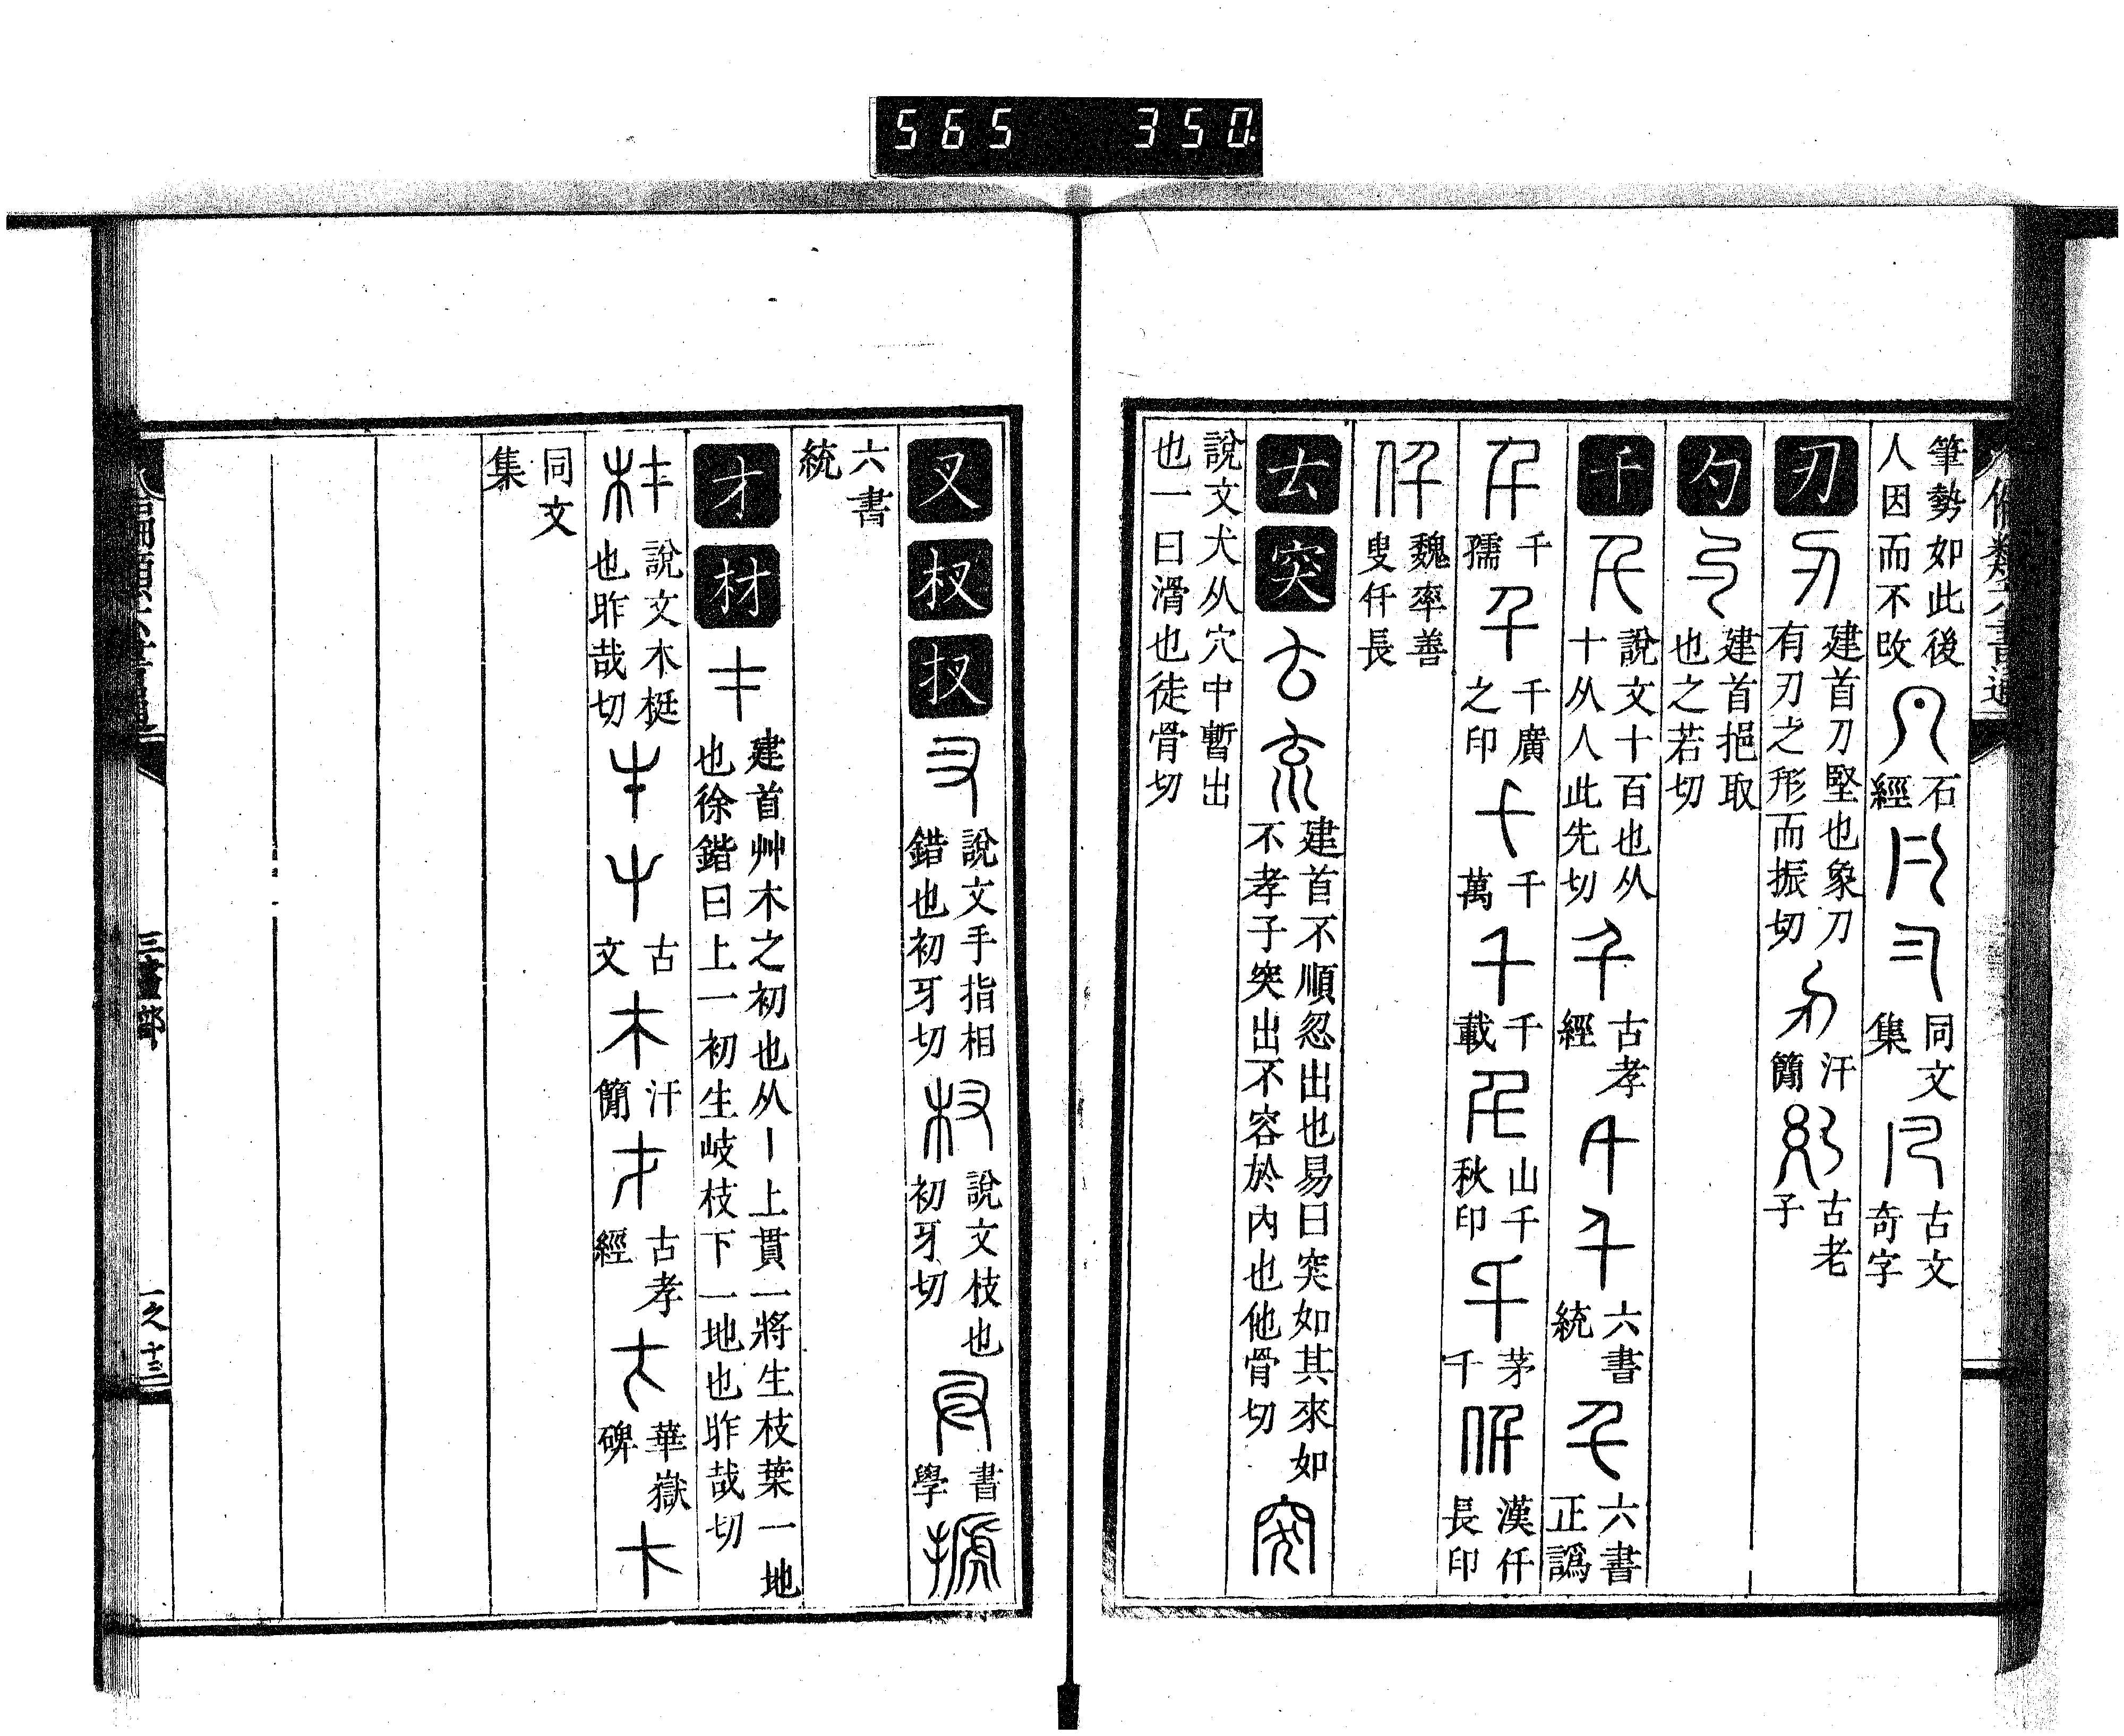 565 350
筆勢如此後
人因而不攺
石
經
同文
集
古文
奇字
刃
建首刀堅也象刀
有刃之形而振切
汗
簡
古老
子
勺
建首挹取
也之若切
千
說文十百也从
十从人此先切
古孝
經
六書
統
六書
正譌
千
孺
千廣
之印
千
萬
千
載
山千
秋印
茅
千
漢仟
長印
魏率善
叟仟長
𠫓
突
建首不順忽出也易曰突如其來如
不孝子突出不容於內也他骨切
說文犬从穴中暫出
也一曰滑也徒骨切
叉
杈
扠
說文手指相
錯也初牙切
說文枝也
初牙切
書
學
六書
統
才
材
建首艸木之初也从丨上貫一將生枝葉一地
也徐鍇曰上一初生岐枝下一地也昨哉切
說文木梃
也昨哉切
古
文
汗
簡
古孝
經
華嶽
碑
同文
集
三畫部
一之十三